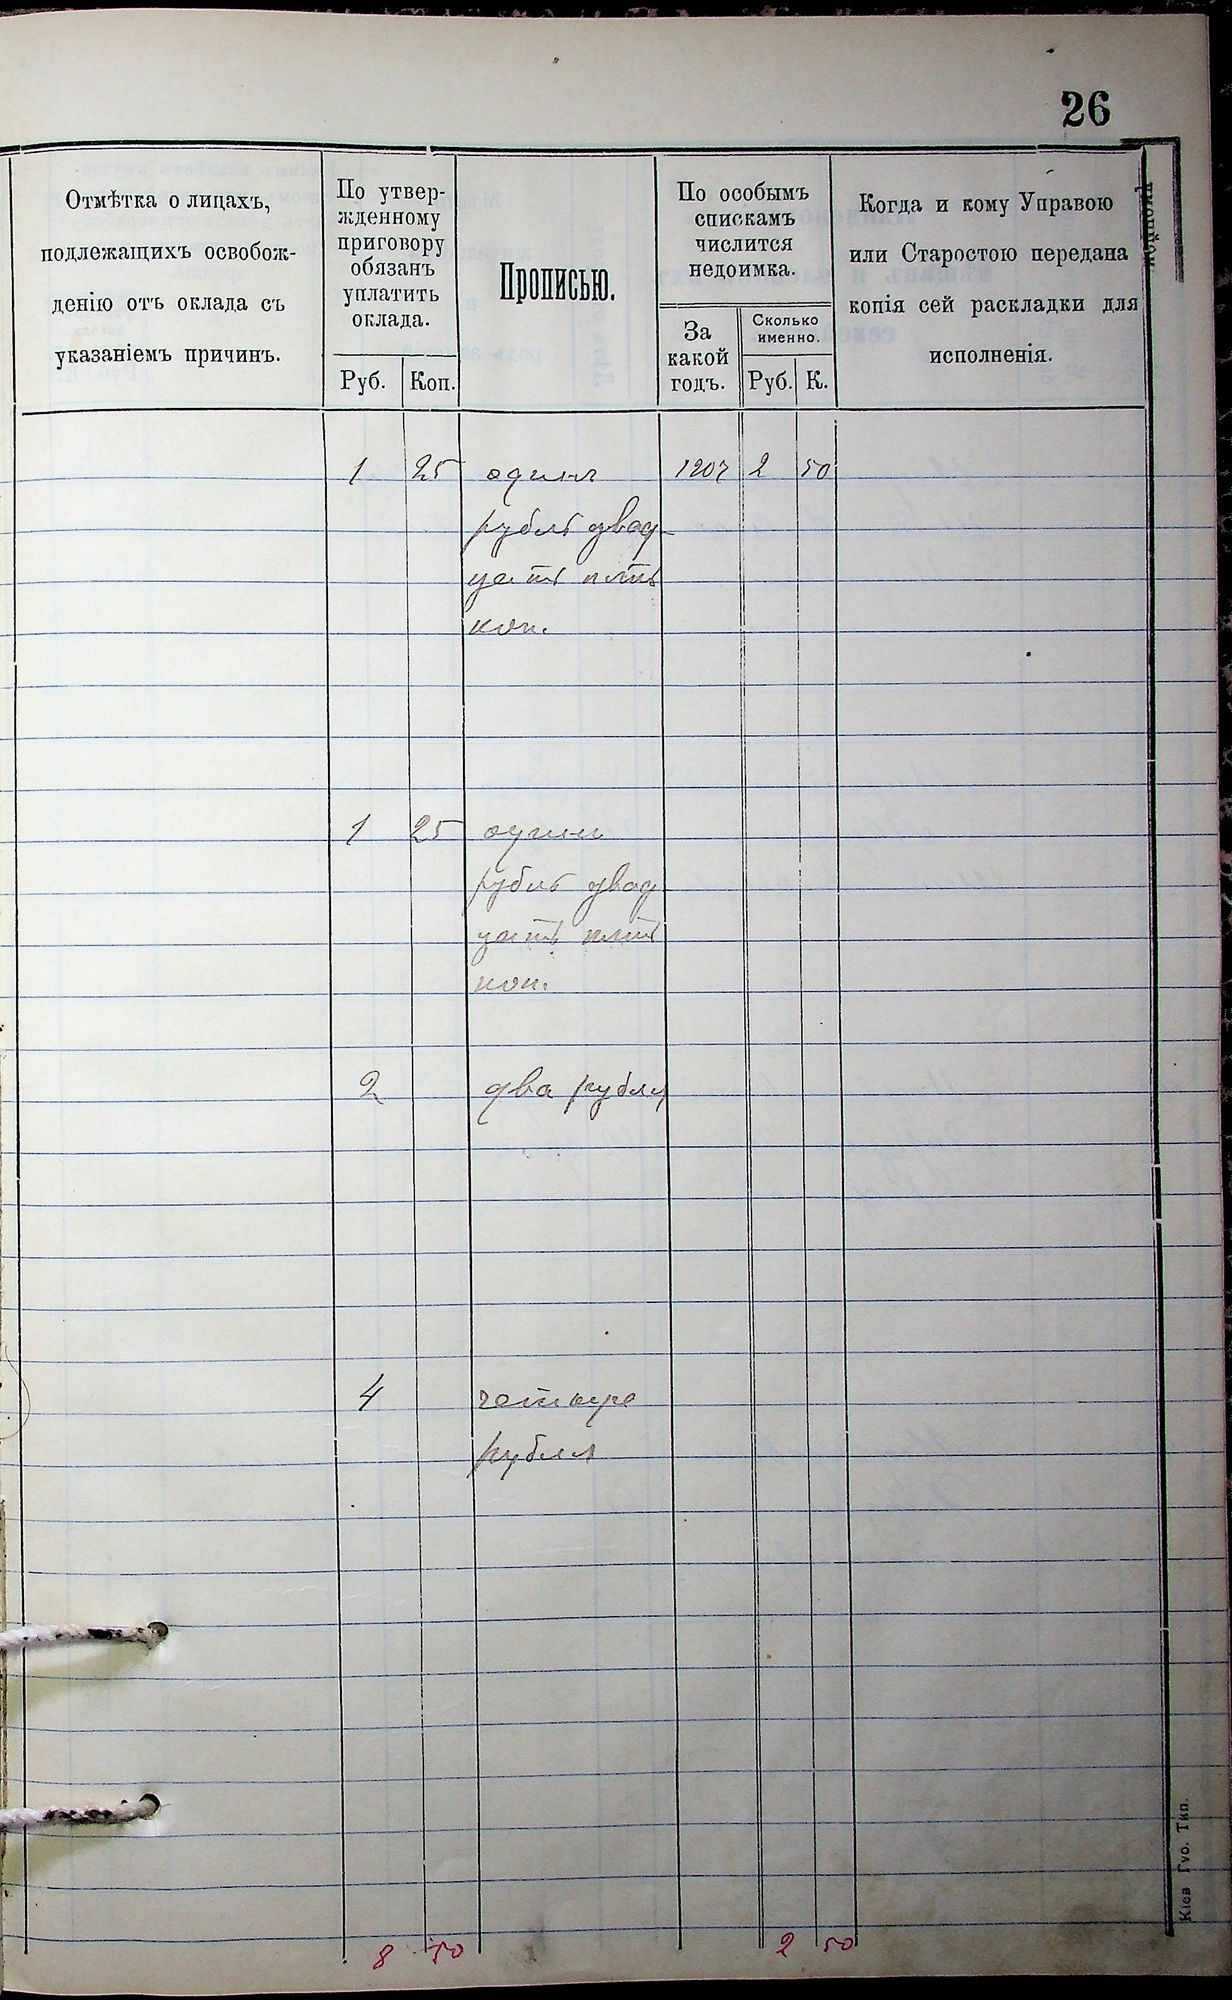 26
Отмѣтка о лицахъ,
подлежащихъ освобож-
денію отъ оклада съ
указаніемъ причинъ.
По утвер-
жденному
приговору
обязанъ
уплатить
оклада.
Руб. Коп.
Прописью.
По особымъ
спискамъ
числится
недоимка.
За
какой
годъ.
Сколько
именно.
Руб. К.
Когда и кому Управою
или Старостою передана
копія сей раскладки для
исполненія.
1 25 одинъ 1907 2 50
рубль двад-
цать пять
коп.
1 25 одинъ
рубль двад
цать пять
коп.
2 два рубля
4 четыре
рубля
8 50 2 50
Кіев Губ. Тип.